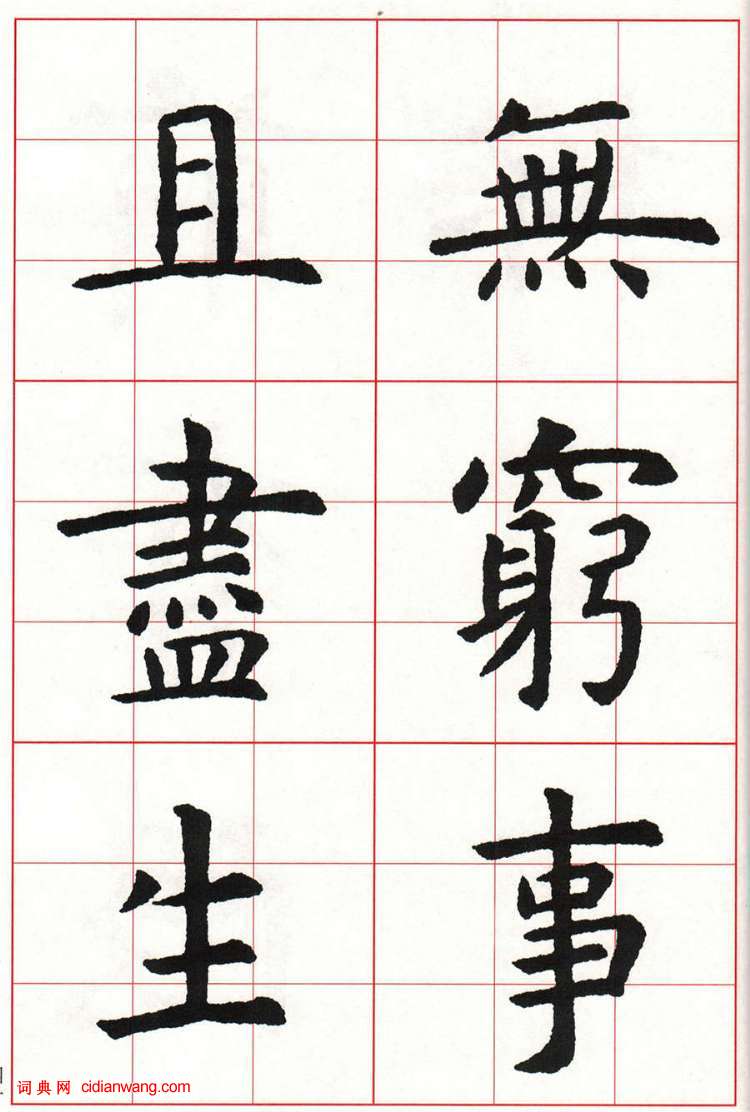 無窮事
且盡生
词典网 cidianwang.com